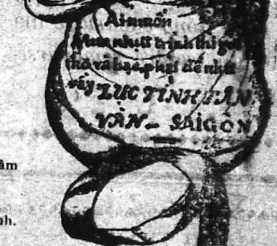 Ai muốn
mua nhựt trình thì gởi
thơ và bạc phải đề như
vầy LỤC TỈNH TÂN
VĂN_ SAIGON
âm
nh.